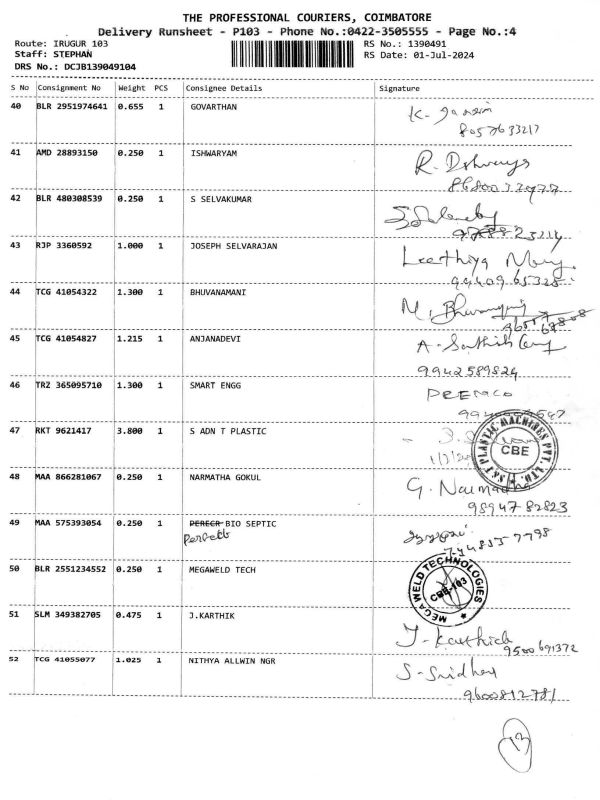 THE PROFESSIONAL COURIERS, COIMBATORE
Delivery Runsheet - P103 - Phone No.:0422-3505555 - Page No.:4
Route: IRUGUR 103 RS No.: 1390491
Staff: STEPHAN RS Date: 01-Jul-2024
DRS No.: DCJB139049104
S No Consignment No Weight PCS Consignee Details Signature
40 BLR 2951974641 0.655 1 GOVARTHAN
8057633217
41 AMD 28893150 0.250 1 ISHWARYAM
42 BLR 480308539 0.250 1 S SELVAKUMAR
43 RJP 3360592 1.000 1 JOSEPH SELVARAJAN
Leethiya Mary.
9940965328
44 TCG 41054322 1.300 1 BHUVANAMANI
45 TCG 41054827 1.215 1 ANJANADEVI
9942589824
46 TRZ 365095710 1.300 1 SMART ENGG
47 RKT 9621417 3.800 1 S ADN T PLASTIC
S&T PLASTIC MACHINES PVT. LTD. CBE
48 MAA 866281067 0.250 1 NARMATHA GOKUL
G. Narmadha
9894782823
49 MAA 575393054 0.250 1 PERECR BIO SEPTIC
50 BLR 2551234552 0.250 1 MEGAWELD TECH
MEGA WELD TECHNOLOGIES CBE-103
51 SLM 349382705 0.475 1 J.KARTHIK
J. Karthick
9500691372
52 TCG 41055077 1.025 1 NITHYA ALLWIN NGR
S. Sridhar
9600812781
13